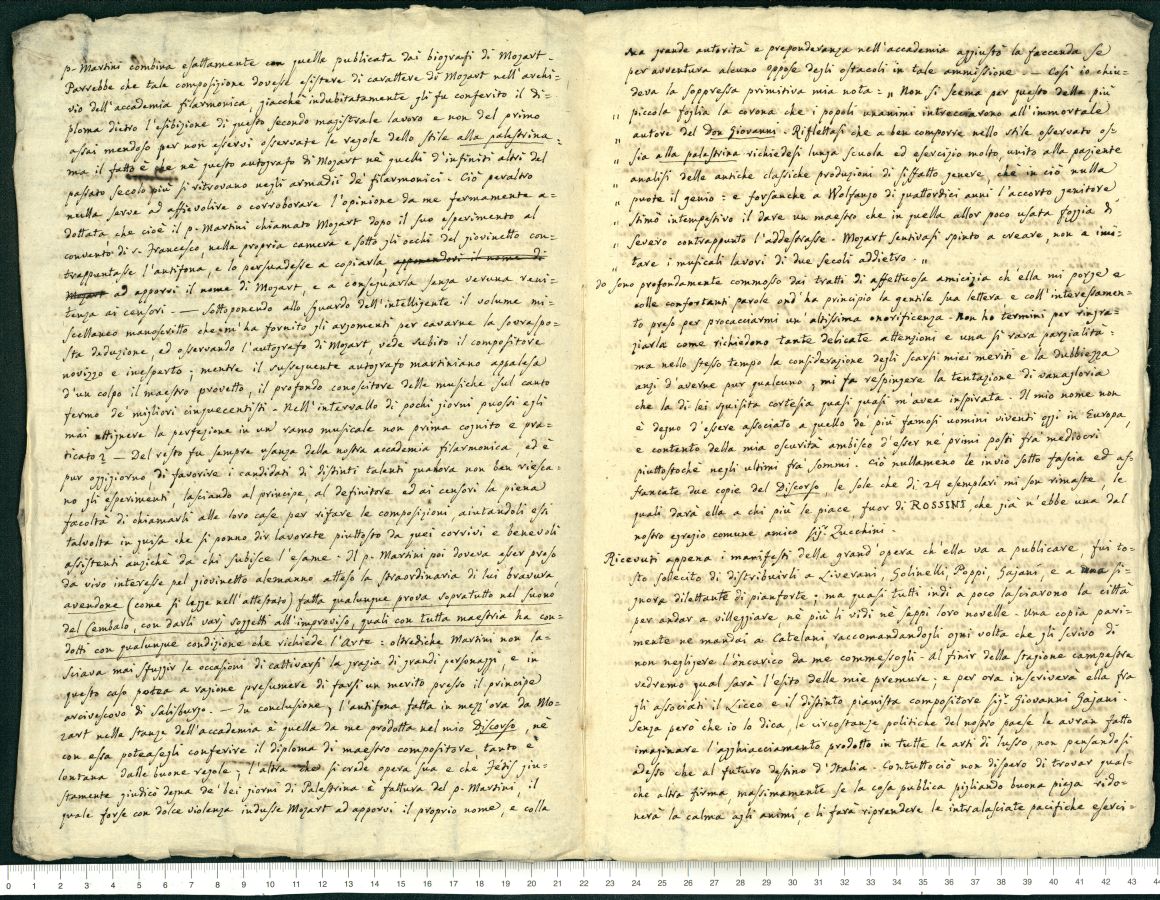 p. Martini combina esattamente con quella publicata dai biografi di Mozart.
Parrebbe che tale composizione dovesse esistere di carattere di Mozart nell'archi=
vio dell'accademia filarmonica, giacchè indubitatamente gli fu conferito il di=
ploma dietro l'esibizione di questo secondo magistrale lavoro e non del primo
assai mendoso per non esservi osservate le regole dello stile alla palestrina:
ma il fatto è che nè questo autografo di Mozart nè quelli d'infiniti altri del
passato secolo più si ritrovano negli armadii de' filarmonici. Ciò peraltro
nulla serve ad affievolire o corroborare l'opinione da me fermamente a=
dottata che cioè il p. Martini chiamato Mozart dopo il suo esperimento al
convento di s. Francesco, nella propria camera e sotto gli occhi del giovinetto con=
trappuntasse l'antifona, e lo persuadesse a copiarla, apponendovi il nome di
Mozart ad apporvi il nome di Mozart, e a consegnarla sanza veruna reni=
tenza ai censori. — Sottoponendo allo sguardo dell'intelligente il volume mi=
scellaneo manoscritto che m'ha fornito gli argomenti per cavarne la sovraspo=
sta deduzione, ed osservando l'autografo di Mozart, vede subito il compositore
novizzo e inesperto; mentre il susseguente autografo martiniano appalesa
d'un colpo il maestro provetto, il profondo conoscitore delle musiche sul canto
fermo de' migliori cinquecentisti. Nell'intervallo di pochi giorni puossi egli
mai attignere la perfezione in un' ramo musicale non prima cognito e pra=
ticato? — Del resto fu sempre usanza della nostra accademia filarmonica, ed è
pur oggigiorno, di favorire i candidati di distinti talenti quanora non ben riesca=
no gli esperimenti, lasciando al principe, al definitore ed ai censori la piena
facoltà di chiamarli alle loro case per rifare le composizioni, aiutandoli essi
talvolta in guisa che si ponno dir lavorate piuttosto da quei corrivi e benevoli
assistenti anziche da chi subisce l'esame. Il p. Martini poi doveva esser preso
da vivo interesse pel giovinetto alemanno atteso la straordinaria di lui bravura
avendone (come si legge nell'attestato) fatta qualunque prova sopratutto nel suono
del Cembalo, con darli varj soggetti all'improviso, quali con tutta maestria ha con=
dotti con qualunque condizione che richiede l'Arte: oltrediche Martini non la=
sciava mai sfuggir le occasioni di cattivarsi la grazia di grandi personaggi, e in
questo caso potea a ragione presumere di farsi un merito presso il principe
arcivescovo di Salisburgo. — In conclusione, l'antifona fatta in mezz'ora da Mo=
zart nelle stanze dell'accademia è quella da me prodotta nel mio Discorso, nè
con essa poteasegli conferire il diploma di maestro compositore tanto è
lontana dalle buone regole; l'altra che si crede opera sua e che Fétis giu=
stamente giudicò degna de' bei giorni di Palestrina è fattura del p. Martini, il
quale forse con dolce violenza indusse Mozart ad apporvi il proprio nome, e colla
sua grande autorità e preponderanza nell'accademia aggiustò la faccenda se
per avventura alcuno oppose degli ostacoli in tale ammissione. — Così io chiu=
deva la soppressa primitiva mia nota: „ Non si scema per questo della più
„ piccola foglia la corona che i popoli unanimi intrecciarono all'immortale
„ autore del don Giovanni. Riflettasi che a ben comporre nello stile osservato os=
„ sia alla palestrina richiedesi lunga scuola ed esercizio molto, unito alla paziente
„ analisi delle antiche classiche produzioni di siffatto genere, chè in ciò nulla
„ puote il genio: e forsanche a Wolfango di quattordici anni l'accorto genitore
„ stimò intempestivo il dare un maestro che in quella allor poco usata foggia di
„ severo contrappunto l'addestrasse. Mozart sentivasi spinto a creare, non a imi=
„ tare i musicali lavori di due secoli addietro. „
Io sono profondamente commosso dai tratti di affettuosa amicizia ch'ella mi porge e
colle confortanti parole ond'ha principio la gentile sua lettera e coll'interessamen=
to preso per procacciarmi un' altissima onorificenza. Non ho termini per ringra=
ziarla come richiedono tante delicate attenzioni e una sì rara parzialità:
ma nello stesso tempo la considerazione degli scarsi miei meriti e la dubbiezza
anzi d'averne pur qualcuno, mi fa respingere la tentazione di vanagloria
che la di lei squisita cortesia quasi quasi m'avea inspirata. Il mio nome non
è degno d'essere associato a quello de' più famosi uomini viventi oggi in Europa,
e contento della mia oscurità ambisco d'esser ne' primi posti fra mediocri
piuttostochè negli ultimi fra sommi. Ciò nullameno le invio sotto fascia ed af=
francate due copie del Discorso, le sole che di 24 esemplari mi son rimaste, le
quali darà ella a chi più le piace fuor di ROSSINI, che già n'ebbe una dal
nostro egregio comune amico sig. Zucchini.
Ricevuti appena i manifesti della grand' opera ch'ella va a publicare, fui to=
sto sollecito di distribuirli a Liverani, Golinelli, Poppi, Gajani, e a una si=
gnora dilettante di pianforte: ma quasi tutti indi a poco lasciarono la città
per andar a villeggiare nè più li vidi nè seppi loro novelle. Una copia pari=
mente ne mandai a Catelani raccomandandogli ogni volta che gli scrivo di
non neglijere l'oncarico da me commessogli. Al finir della stagione campestre
vedremo qual sarà l'esito delle mie premure; e per ora inscriverà ella fra
gli associati il Liceo e il distinto pianista compositore sig. Giovanni Gajani.
Senza però che io lo dica, le circostanze politiche del nostro paese le avran fatto
imaginare l'agghiacciamento prodotto in tutte le arti di lusso, non pensandosi
adesso che al futuro destino d'Italia. Contuttociò non dispero di trovar qual=
che altra firma, massimamente se la cosa publica pigliando buona piega rido=
nerà la calma agli animi, e li farà riprendere le intralasciate pacifiche eserci=